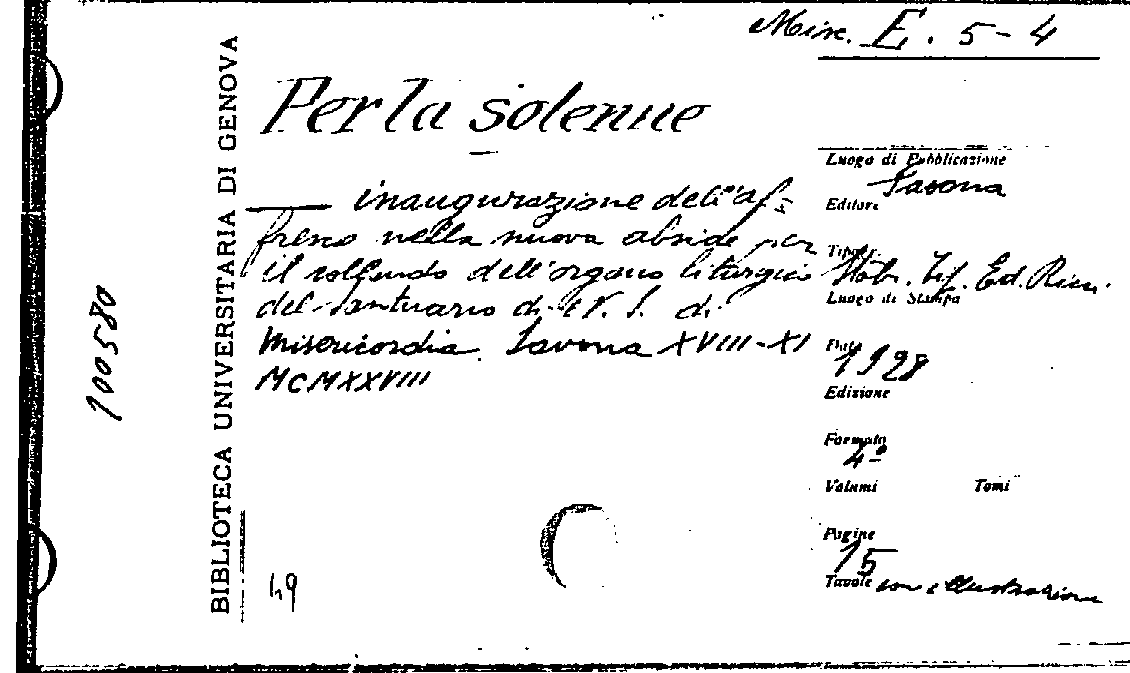 Misc. E. 5-4
Per la solenne
inaugurazione dell'af=
fresco nella nuova abside per
il collaudo dell'organo liturgico
del santuario di N. S. di
Misericordia. Savona XVIII-XI
MCMXXVIII
Luogo di Pubblicazione
Savona
Editore
Tipogr.
Stab. Tip. Ed. Ricci.
Luogo di Stampa
Data
1928
Edizione
Formato
4º
Volumi Tomi
Pagine
15
Tavole con illustrazioni
BIBLIOTECA UNIVERSITARIA DI GENOVA
100580
49